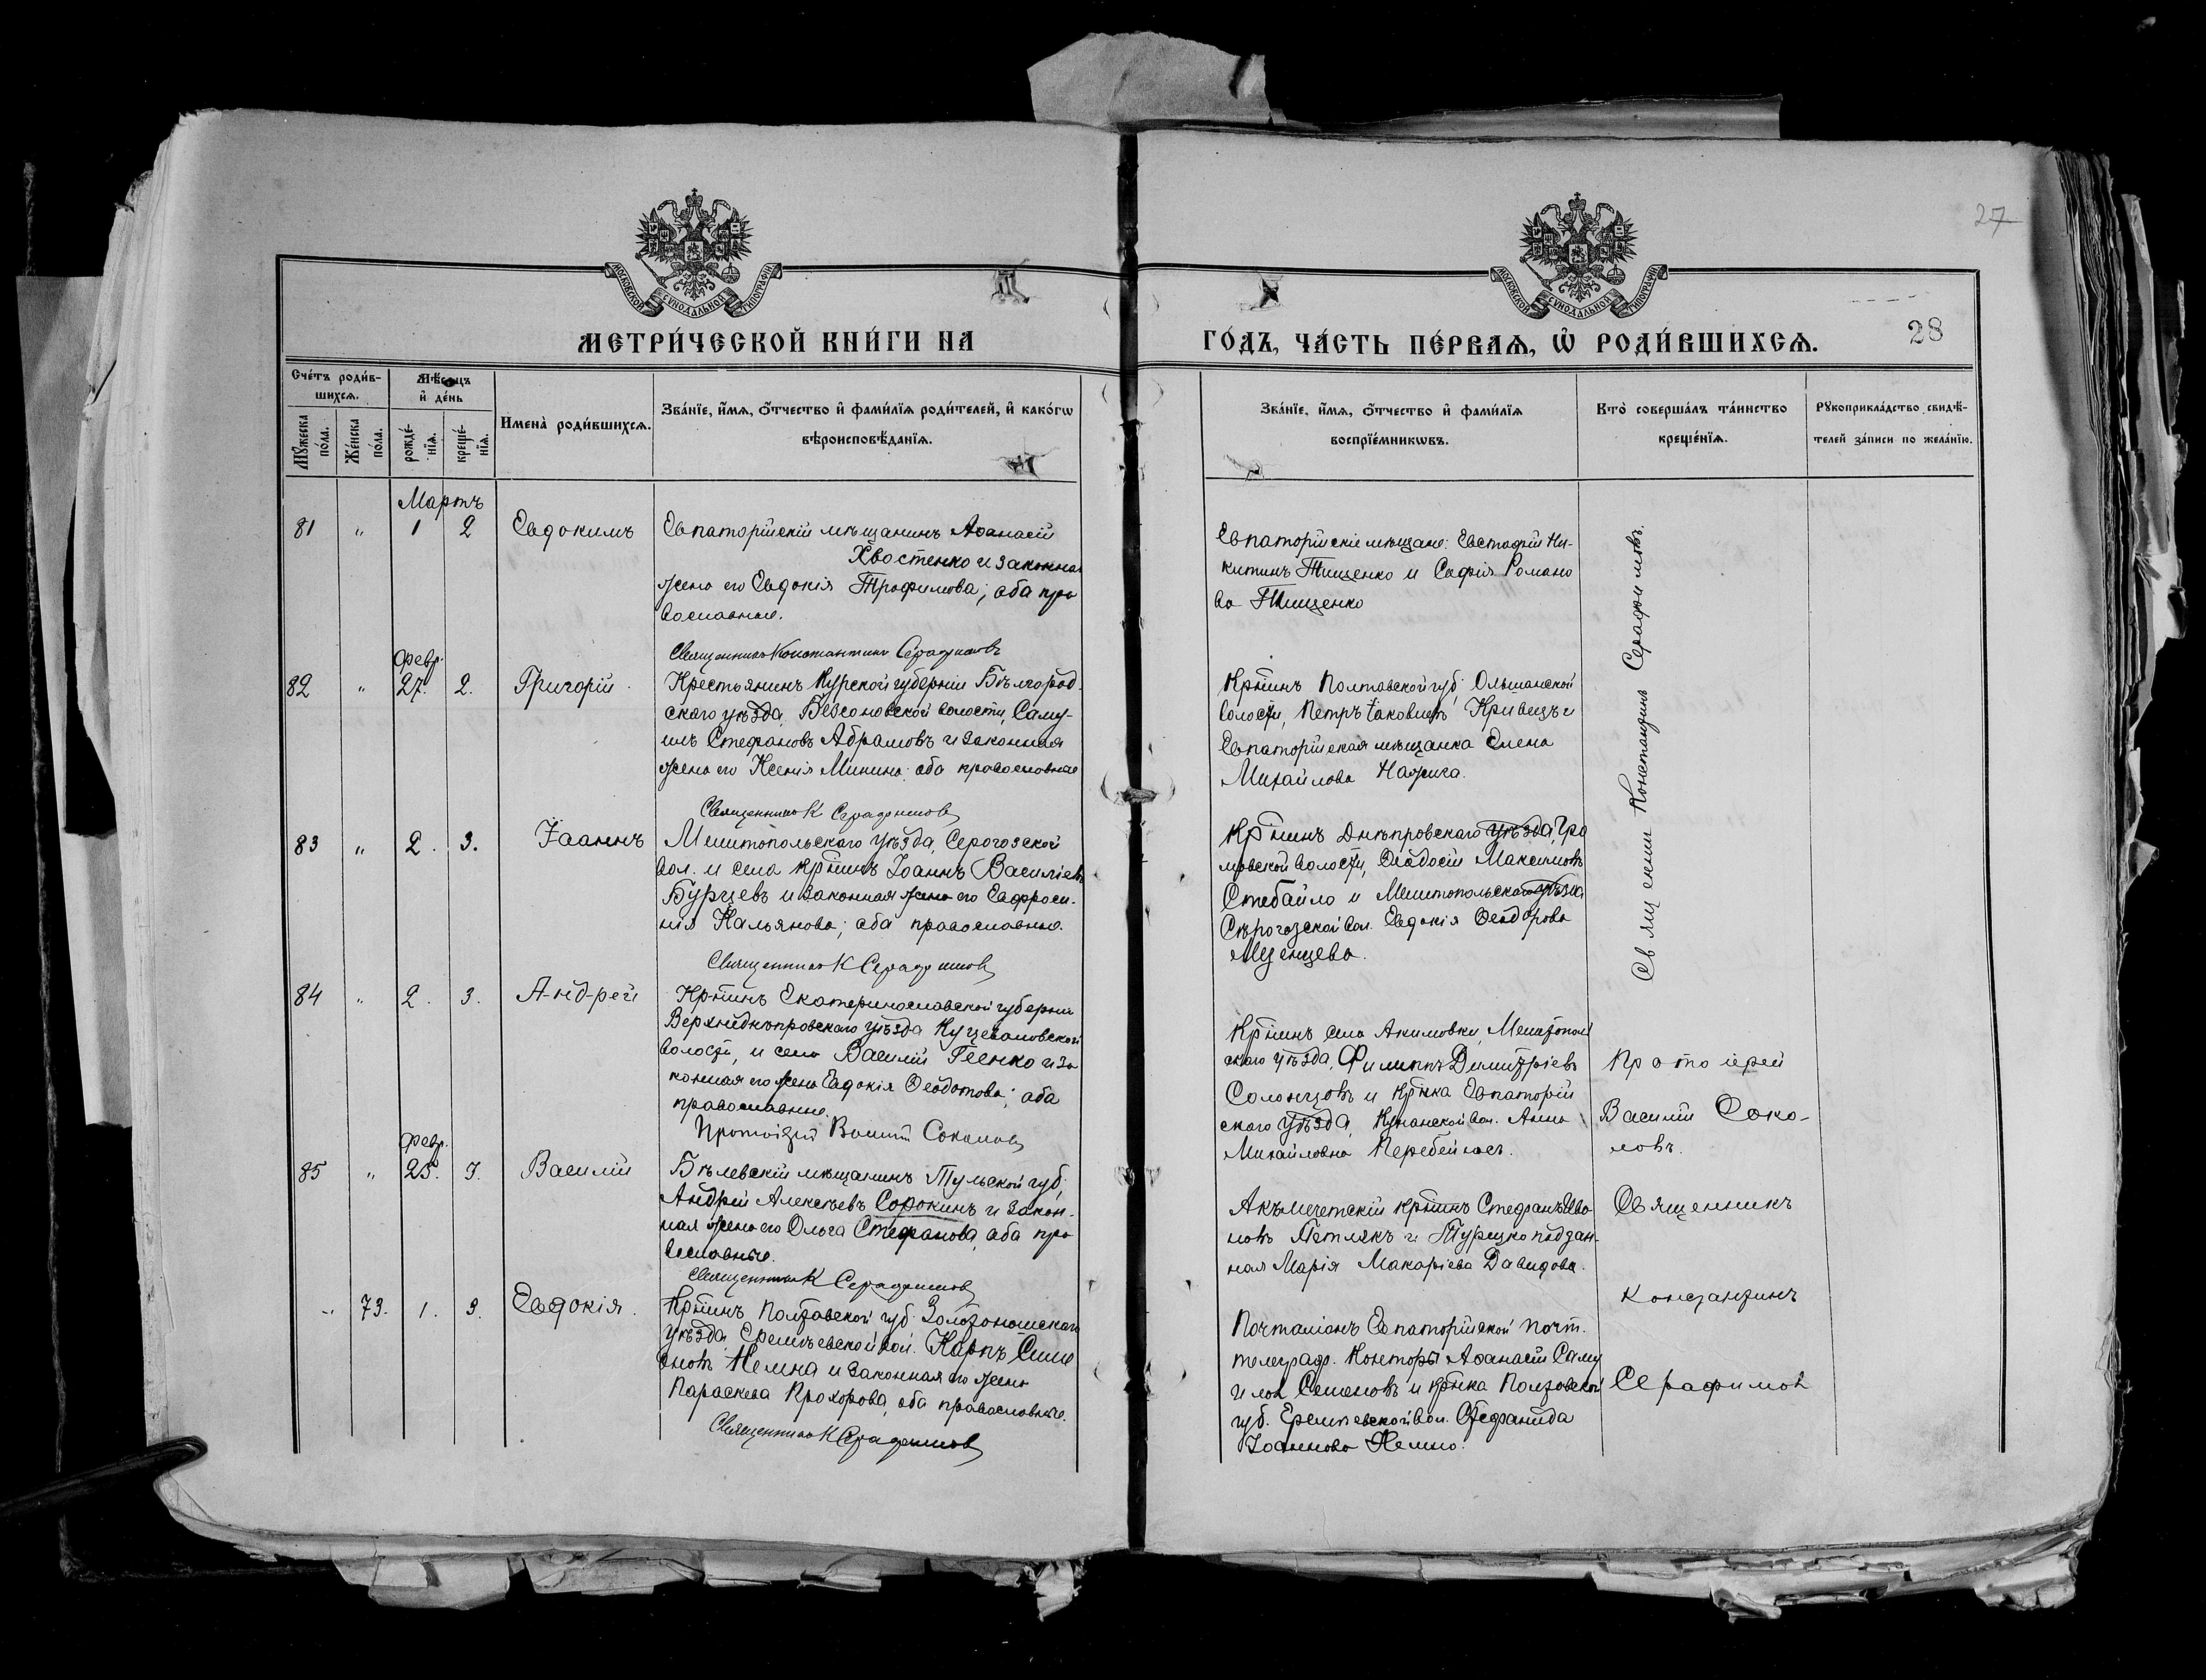 27
МОСКОВСКОЙ СУНОДАЛЬНОЙ ТИПОГРАФІИ
МОСКОВСКОЙ СУНОДАЛЬНОЙ ТИПОГРАФІИ
МЕТРИ́ЧЕСКОЙ КНИ́ГИ НА
ГО́ДЪ, ЧА́СТЬ ПЕ́РВАѦ, Ѡ҆ РОДИ́ВШИХСѦ.
28
Сче́тъ роди́в-
шихсѧ.
Мꙋ́жеска
по́ла.
Же́нска
пола.
Мѣ́сѧцъ
и҆ де́нь
рожде́-
нїѧ.
креще́-
нїѧ.
И҆мена̀ роди́вшихсѧ.
Зва́нїе, и҆́мѧ, ѻ҆́тчество и҆ фами́лїѧ роди́телей, и҆ како́гѡ
вѣроисповѣ́данїѧ.
Зва́нїе, и҆́мѧ, ѻ҆́тчество и҆ фами́лїѧ
воспрїе́мникѡвъ.
Кто̀ соверша́лъ та́инство
креще́нїѧ.
Рꙋкоприкла́дство свидѣ́-
телей за́писи по жела́нїю.
Мартъ
81 " 1 2 Евдокимъ
Евпаторійскій мѣщанинъ Аѳанасій
Хвостенко и законная
жена его Евдокія Трофимова; оба пра
вославные.
Священникъ Константинъ Серафимовъ
Евпаторійскіе мѣщане: Евстафій Ни-
китинъ Тищенко и Софія Романо
ва Тищенко
Священник Константинъ Серафимовъ.
Февр.
82 " 27. 2. Григорій.
Крестьянинъ Курской губерніи Бѣлгород-
скаго уѣзда, Безсоновской волости, Саму-
илъ Стефановъ Абрамовъ и законная
жена его Ксенія Минина; оба православные
Священникъ К Серафимовъ
Кр̃тинъ Полтавской губ; Ольшанской
волости, Петръ Іаковлевъ Кривецъ и
Евпаторійская мѣщанка Елена
Михайлова Нажига.
83 " 2. 3. Іоаннъ
Мелитопольскаго уѣзда, Серогозской
вол. и села кр̃тинъ Іоаннъ Василіевъ
Бурцевъ и законная жена его Евфроси-
нія Кальянова; оба православные.
Священникъ К Серафимовъ
Кр̃тинъ Днѣпровскаго уѣзда, Гро
мовской волости, Ѳеодосій Максимовъ
Стебайло и Мелитопольскаго уѣзда
Сѣрогозской вол. Евдокія Ѳеодорова
Мезенцева.
84 " 2. 3. Андрей
Кр̃тинъ Екатеринославской губерніи
Верхнеднѣпровскаго уѣзда Куцеваловской
волости, и села Василій Геенко и за
конная его жена Евдокія Ѳеодотова; оба
православные.
Протоіерей Василій Соколовъ
Кр̃тинъ села Акимовки, Мелитополь
скаго уѣзда, Филиппъ Димитріевъ
Солонцовъ и кр̃тка Евпаторій
скаго уѣзда, Курманской вол. Анна
Михайловна Перебейносъ.
Протоіерей
Василій Соко-
ловъ.
Февр.
85 " 25. 3. Василій
Бѣлевскій мѣщанинъ Тульской губ;
Андрей Алексѣевъ Сорокинъ и закон-
ная жена его Ольга Стефанова, оба пра
вославные.
Священникъ К Серафимовъ
Акъмечетскій кр̃тинъ Стефанъ Ива
новъ Петлякъ и Турецко поддан-
ная Марія Макаріева Давидова.
Священникъ
Константинъ
Серафимов
" 73. 1. 3. Евдокія.
Кр̃тинъ Полтавской губ Золотоношскаго
уѣзда, Еремѣевской вол. Карпъ Симе
оновъ Немна и законная его жена
Параскева Прохорова, оба православные.
Священникъ К Серафимовъ
Почталіонъ Евпаторійской почт.
телеграф. Конторы Аѳанасій Саму
илов Семеновъ и кр̃тка Полтавской
губ. Еремѣевской вол. Стефанида
Іоаннова Немно.